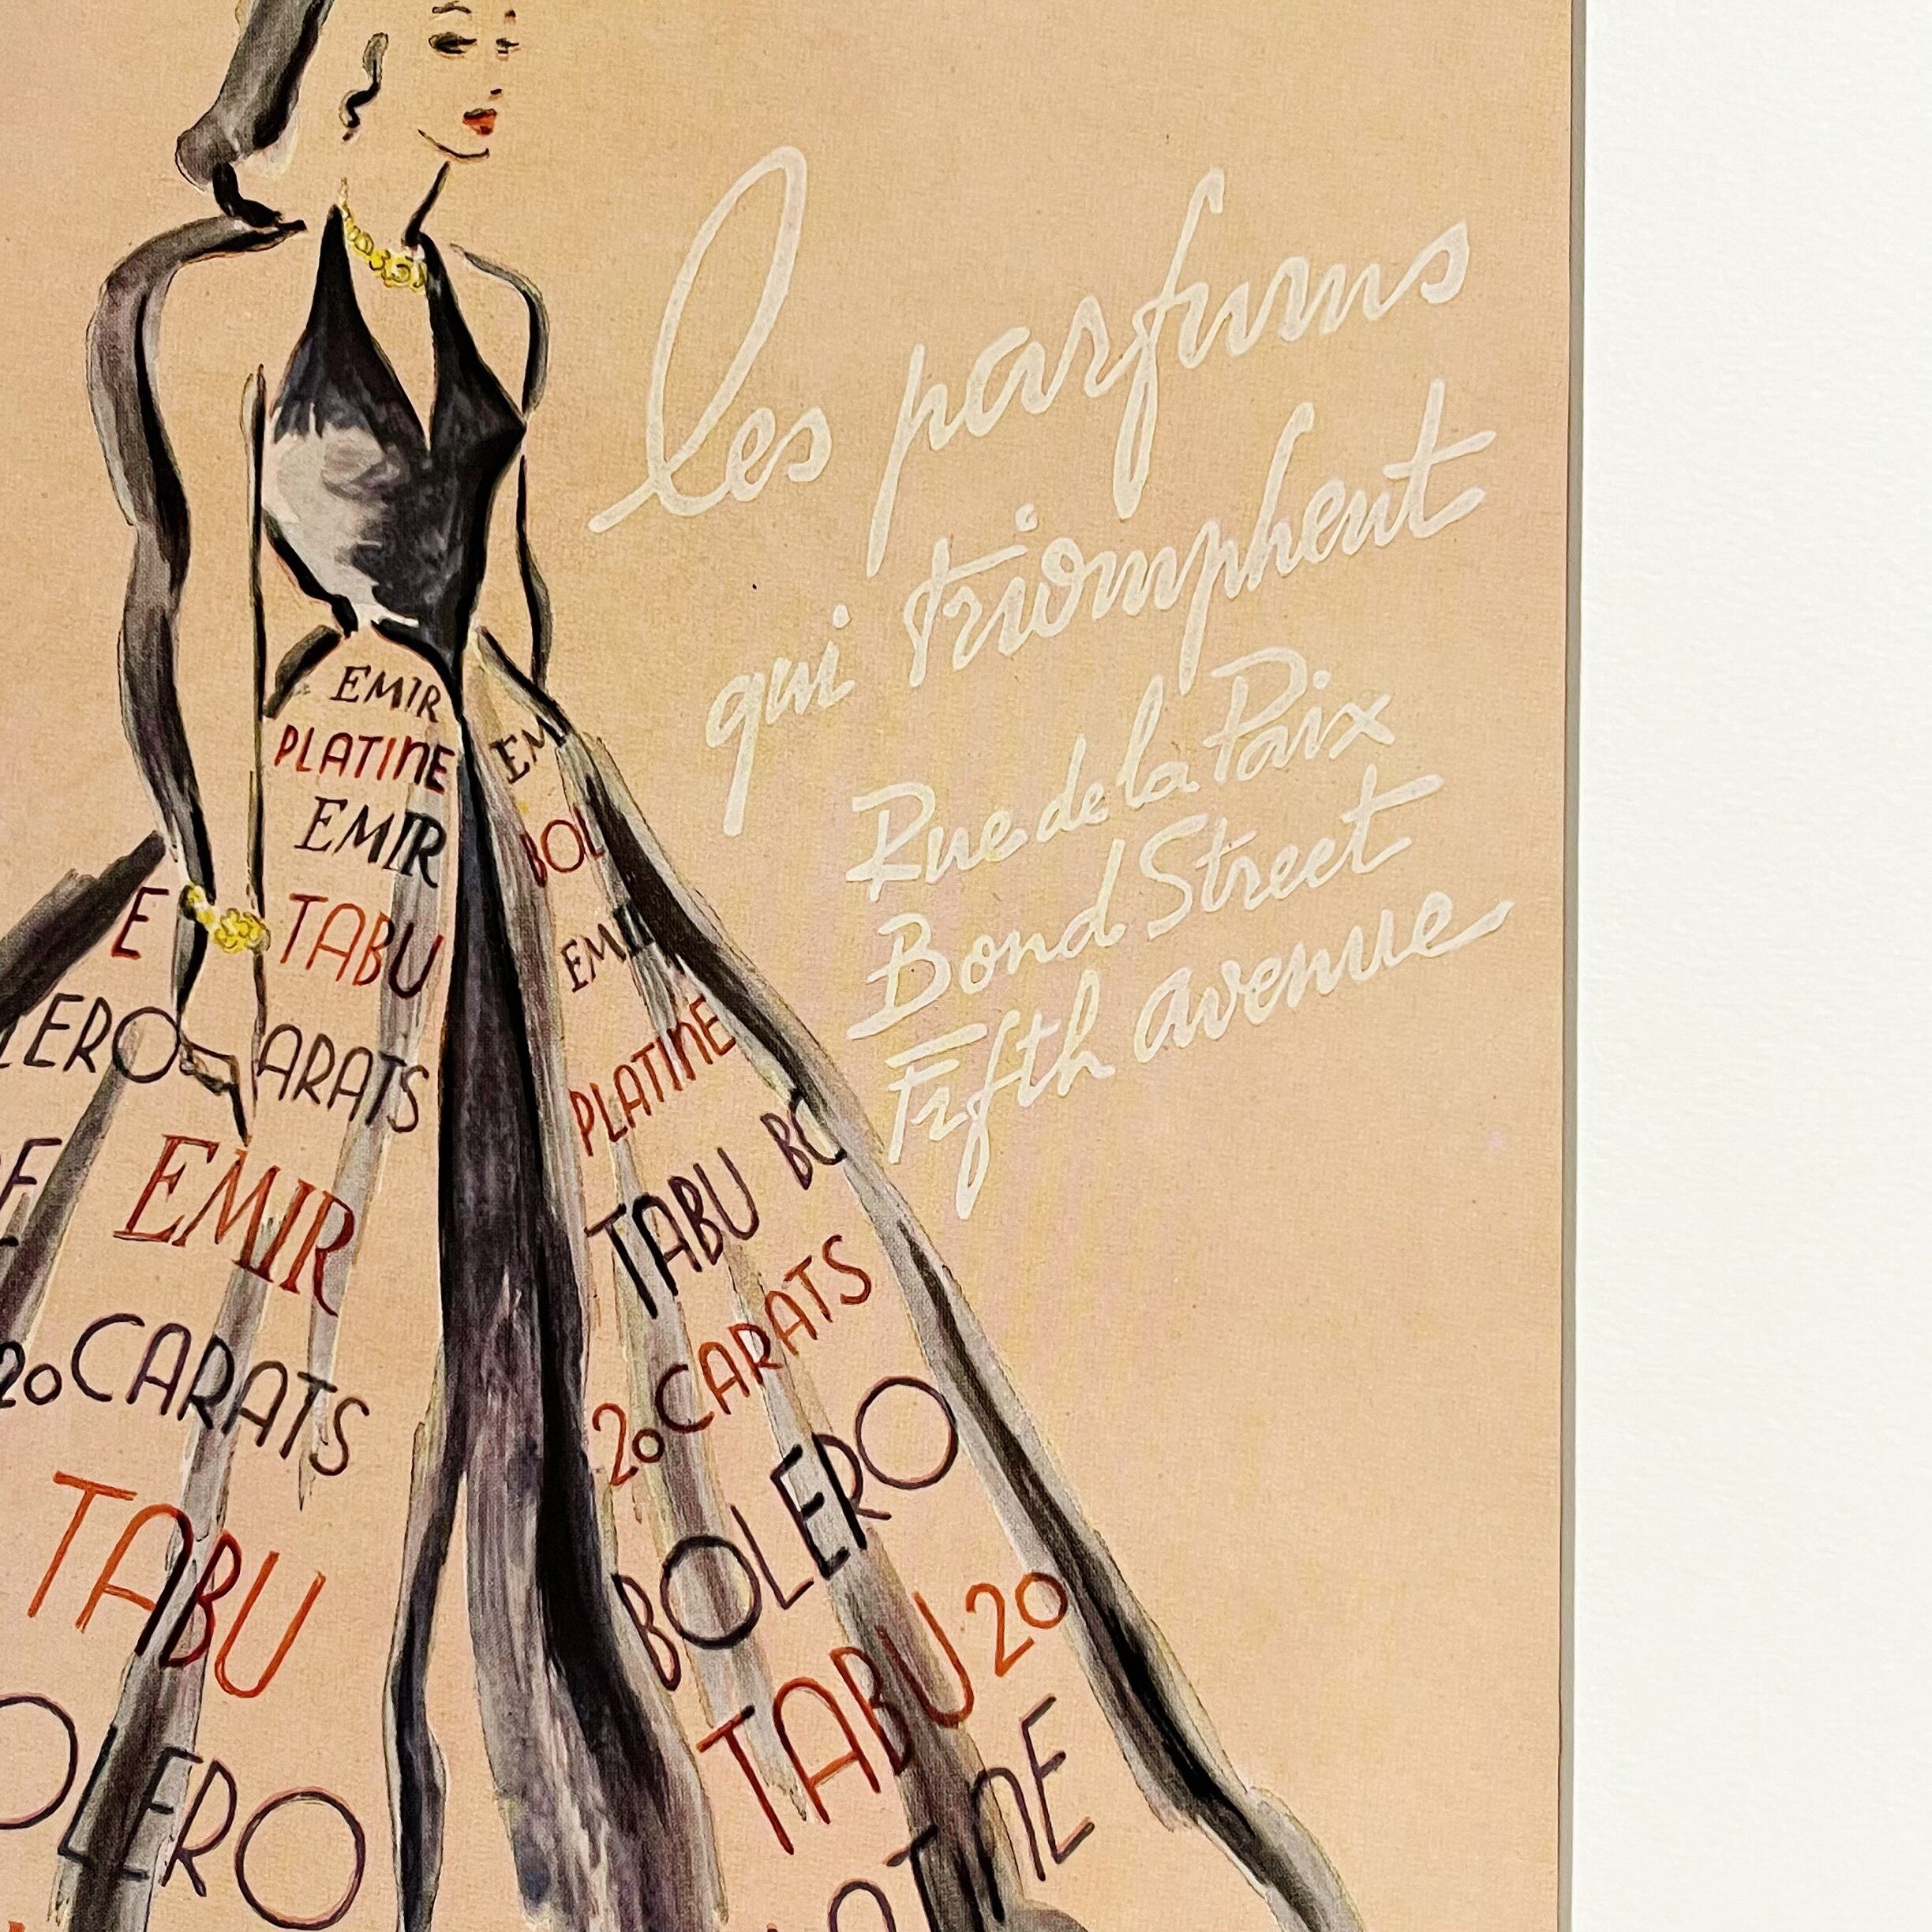 les parfums
qui triomphent
Rue de la Paix
Bond Street
Fifth avenue
EMIR
PLATINE
EMIR
E TABU
LERO ARATS
EMIR
20 CARATS
TABU
OLERO
EM
BOL
EMIR
PLATINE
TABU BO
20 CARATS
BOLERO
TABU 20
ATINE